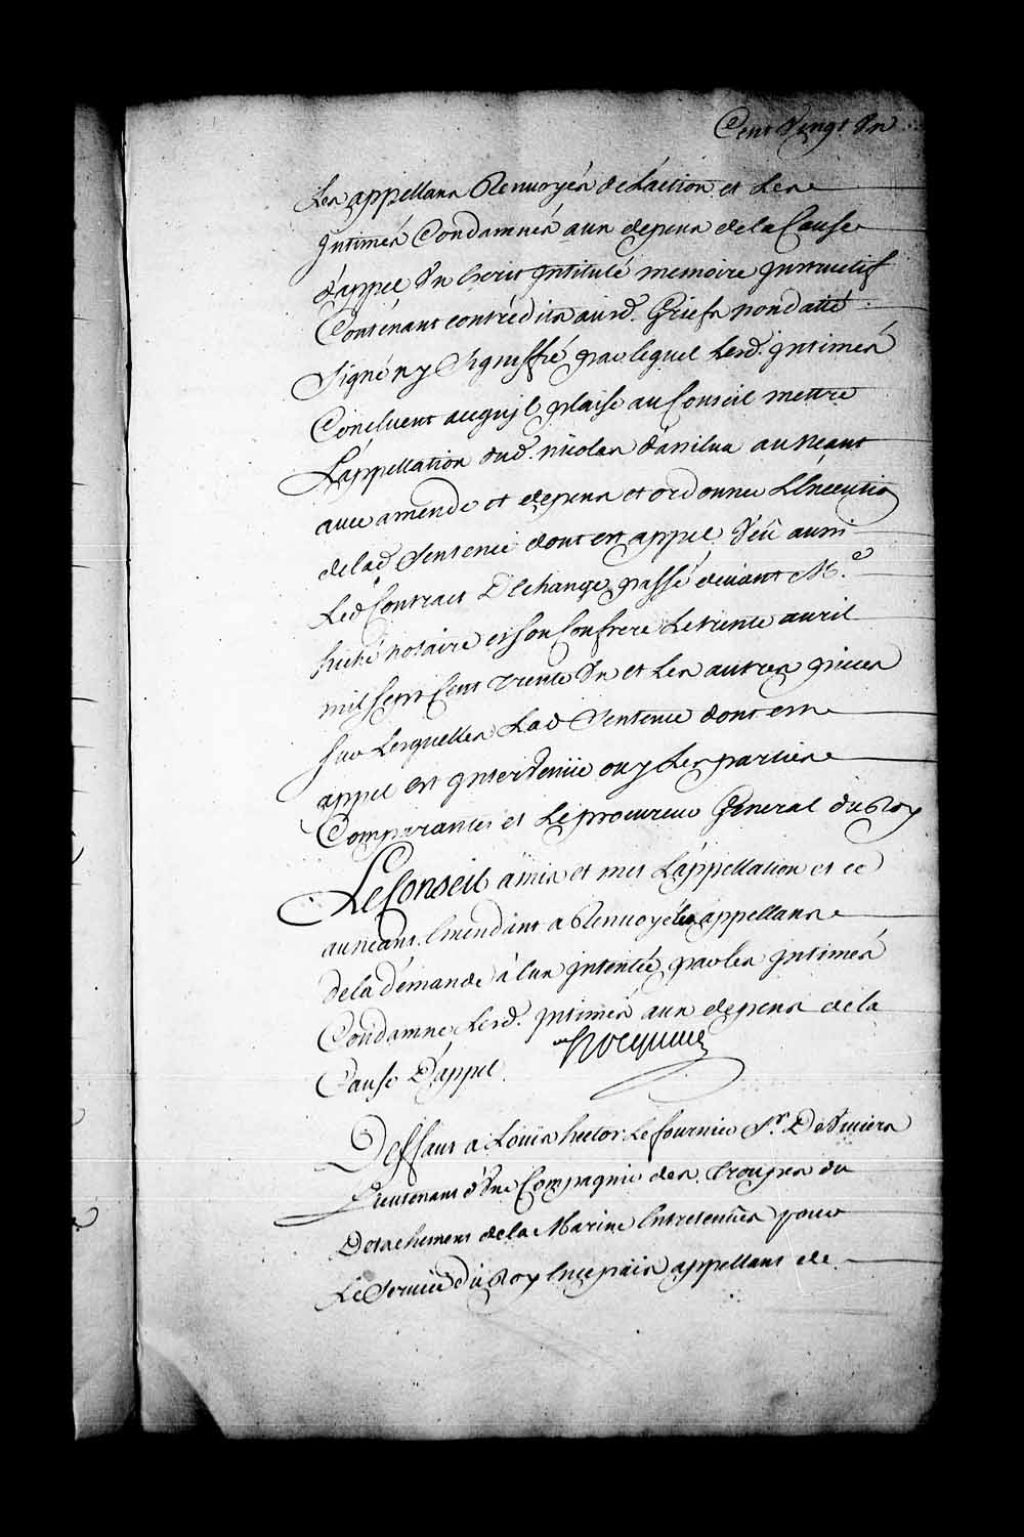 Cent Vingt Un
Les appellans Renvoyés de L'action et Les
Intimés Condamnés aux depens de la Cause
d'appel Un Ecrit Intitulé memoire Instructif
Contenant contredits ausd. Griefs non datté
Signé ny Signiffié par lequel Lesd. Intimés
Concluent acequ'jl plaise au Conseil mettre
L'appellation dud. nicolas dasilva au Neant
avec amende et depens et ordonner L'Execution
de lad. Sentence dont est appel Veû aussi
Led Contract D'Echange passé devant Me.
hiché notaire et Son Confrere Le trente avril
mil Sept Cent trente Un et Les autres pieces
Sur Lesquelles Lad Sentence dont est
appel est Intervenüe ouy Les parties
Comparantes et Le procureur General du Roy
Le Conseil a mis et met L'appellation et ce
au neant. Emendant a Renvoyé les appellans
de la demande à Eux Intentée par les Intimés
Condamne Lesd. Intimés aux depens de la
Cause D'appel. Hocquart
Deffaut a Loüis hector Le fournier Sr. DuVivier
Lieutenant d'Une Compagnie des Troupes du
Detachement de la Marine Entretenües pour
Le Service du Roy En ce païs appellant de